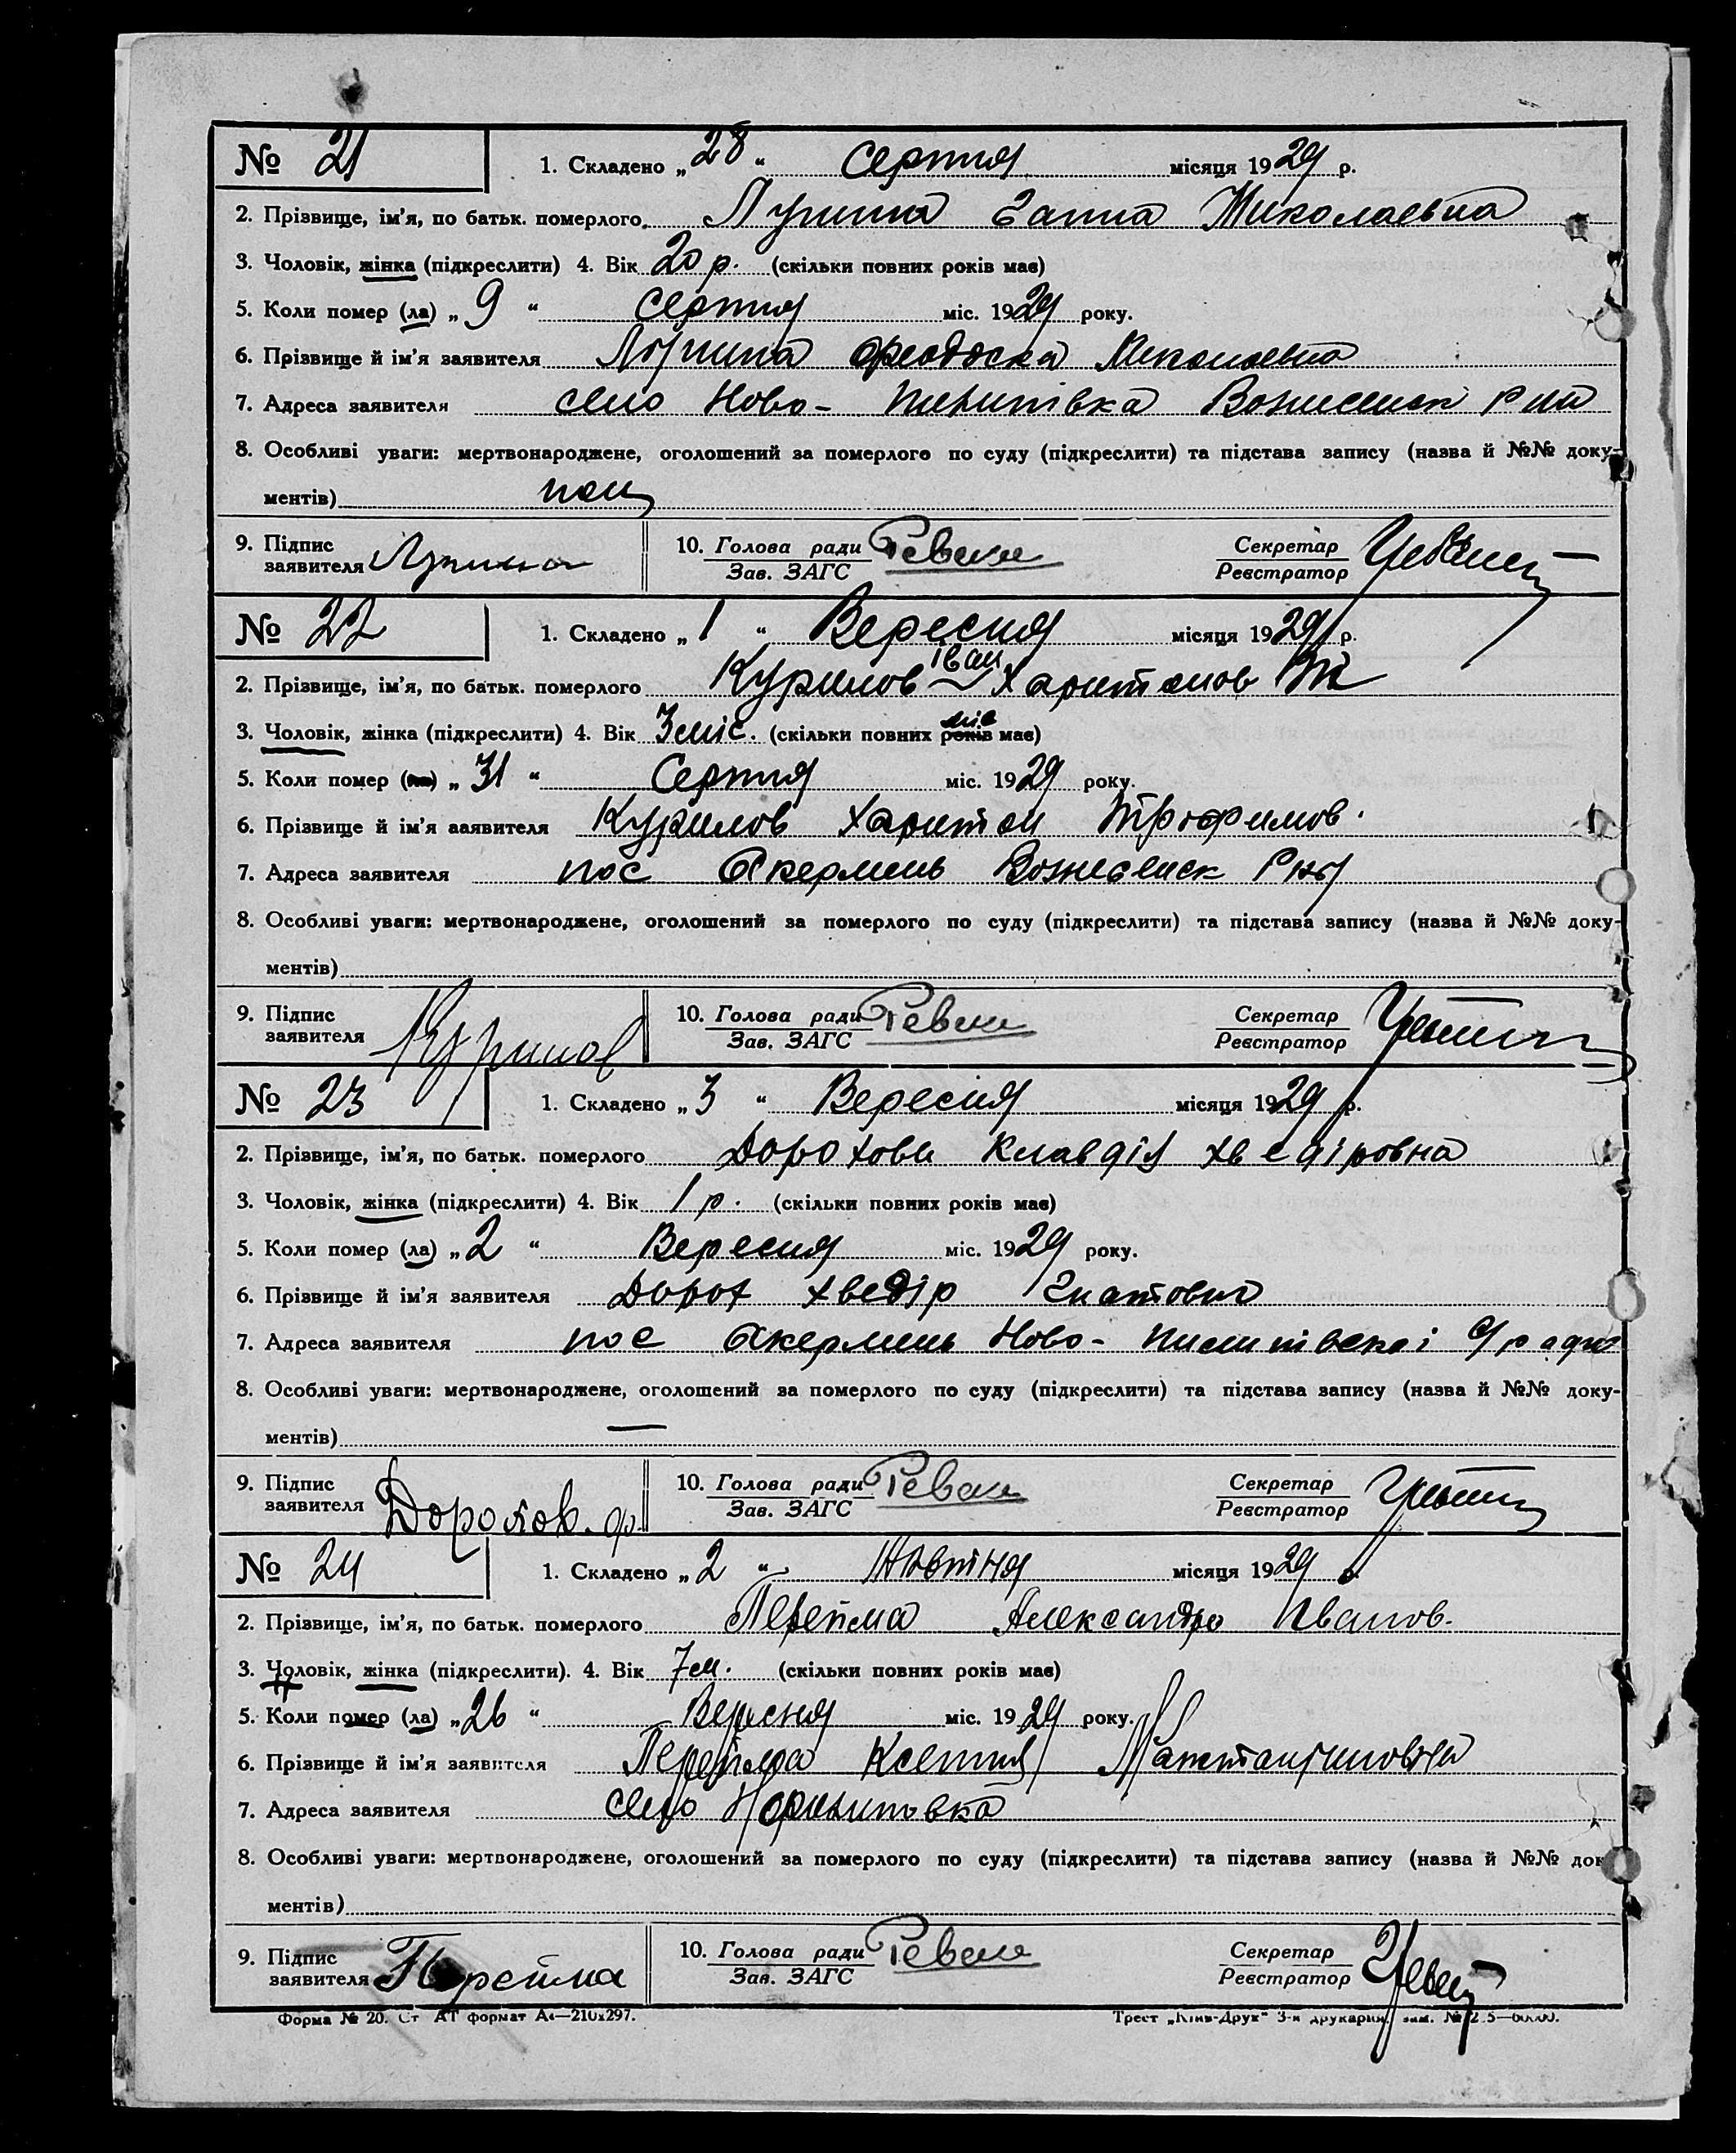 № 21 1. Складено „28“ Серпня місяця 1929 р.
2. Прізвище, ім'я, по батьк. померлого Лупина Ганна Николаевна
3. Чоловік, жінка (підкреслити) 4. Вік 20 р. (скільки повних років має)
5. Коли помер (ла) „9“ Серпня міс. 1929 року.
6. Прізвище й ім'я заявителя Николаевна
7. Адреса заявителя село Ново-
8. Особливі уваги: мертвонароджене, оголошений за померлого по суду (підкреслити) та підстава запису (назва й №№ доку-
ментів)
9. Підпис заявителя 10. Голова ради Зав. ЗАГС Секретар Реєстратор
№ 22 1. Складено „1“ Вересня місяця 1929 р.
2. Прізвище, ім'я, по батьк. померлого Курилов Іван Харитонов
3. Чоловік, жінка (підкреслити) 4. Вік 3 міс. (скільки повних років міс має)
5. Коли помер (ла) „31“ Серпня міс. 1929 року.
6. Прізвище й ім'я заявителя Курилов Харитон Трофимов.
7. Адреса заявителя пос Акермень Вознесенск
8. Особливі уваги: мертвонароджене, оголошений за померлого по суду (підкреслити) та підстава запису (назва й №№ доку-
ментів)
9. Підпис заявителя Курилов 10. Голова ради Зав. ЗАГС Секретар Реєстратор
№ 23 1. Складено „3“ Вересня місяця 1929 р.
2. Прізвище, ім'я, по батьк. померлого Дорохова Клавдія Хведіровна
3. Чоловік, жінка (підкреслити) 4. Вік 1 р. (скільки повних років має)
5. Коли помер (ла) „2“ Вересня міс. 1929 року.
6. Прізвище й ім'я заявителя Дорох Хведір
7. Адреса заявителя пос Акермень Ново-
8. Особливі уваги: мертвонароджене, оголошений за померлого по суду (підкреслити) та підстава запису (назва й №№ доку-
ментів) —
9. Підпис заявителя Дорохов. ф. 10. Голова ради Зав. ЗАГС Секретар Реєстратор
№ 24 1. Складено „2“ Жовтня місяця 1929 р.
2. Прізвище, ім'я, по батьк. померлого Перейма Александра Иванов.
3. Чоловік, жінка (підкреслити). 4. Вік 7 м. (скільки повних років має)
5. Коли помер (ла) „26“ Вересня міс. 1929 року.
6. Прізвище й ім'я заявителя Перейма Ксения
7. Адреса заявителя село
8. Особливі уваги: мертвонароджене, оголошений за померлого по суду (підкреслити) та підстава запису (назва й №№ доку
ментів)
9. Підпис заявителя Перейма 10. Голова ради Зав. ЗАГС Секретар Реєстратор
Форма № 20. Ст АТ формат А4—210х297. Трест „Київ-Друк“ 3-я друкарня.